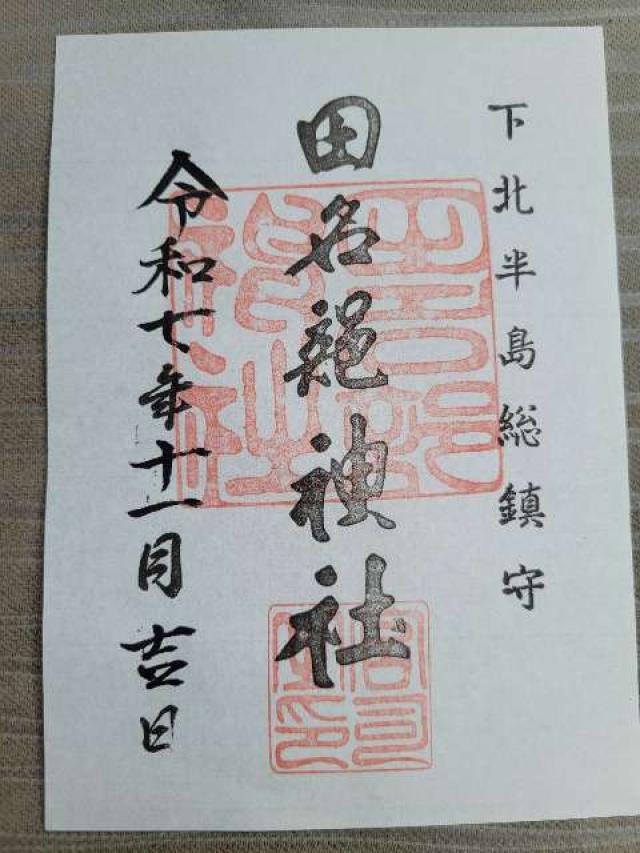 下北半島総鎮守
田名部神社
令和七年十一月吉日